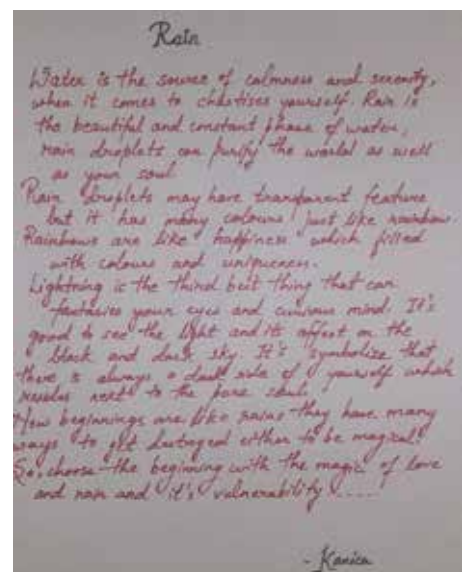 Rain
Water is the source of calmness and serenity,
when it comes to chastises yourself. Rain is
the beautiful and constant phase of water,
rain droplets can purify the world as well
as your soul.
Rain droplets may have transparent feature
but it has many colours just like rainbow.
Rainbows are like happiness which filled
with colours and uniqueness.
Lightning is the third best thing that can
fantasies your eyes and curious mind. It's
good to see the light and its affect on the
black and dark sky. It's symbolize that
there is always a dark side of yourself which
resides next to the pure soul.
New beginnings are like rains they have many
ways to get destroyed either to be magical.
So, choose the beginning with the magic of love
and rain and it's vulnerability .....
- Kanica